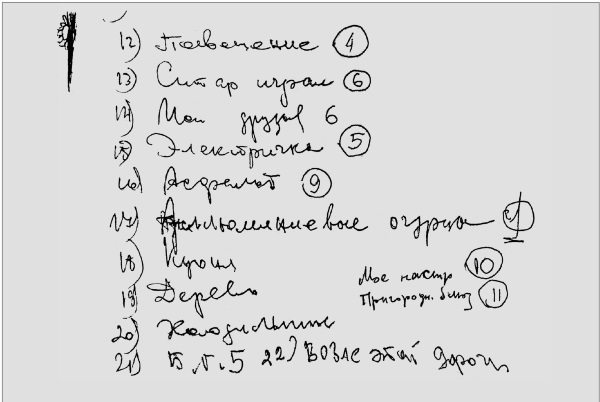 12) Посвещение 4
13) Ситар играл 6
14) Мои друзья 6
15) Электричка 5
16) Асфальт 9
17) Аллюминиевые огурцы
18)
Мое настр 10
19) Дерево
Пригородн. блюз 11
20) Холодильник
21) 22) Возле этой дороги